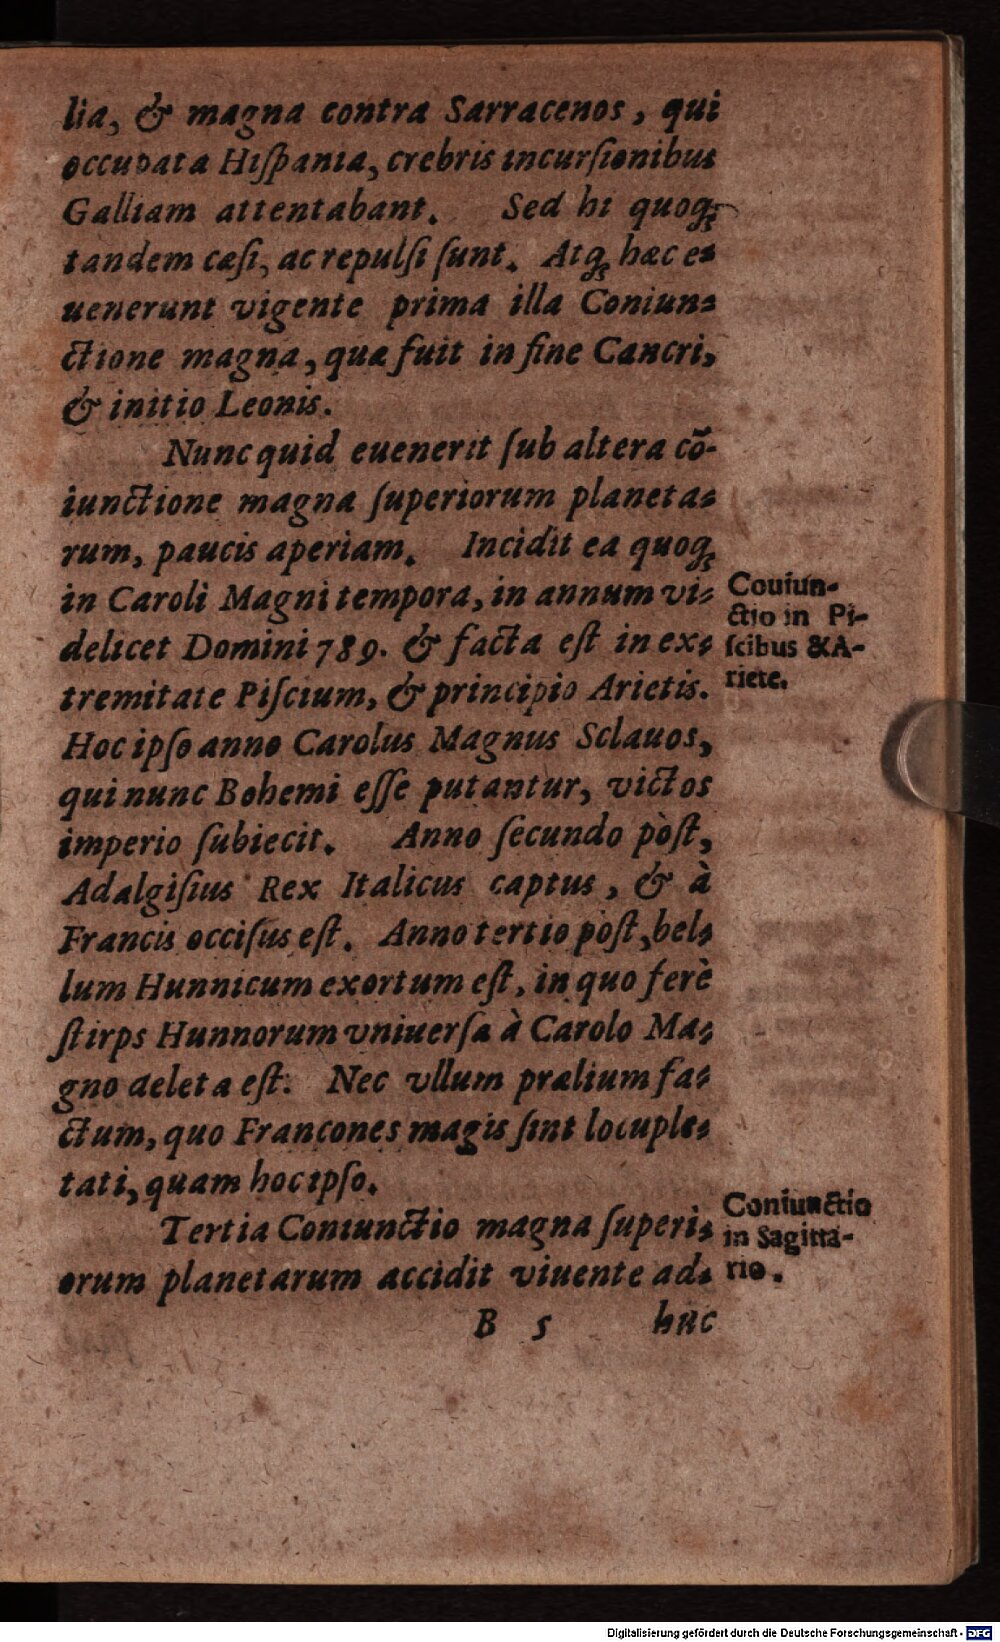 lia, & magna contra Sarracenos, qui
occupata Hiſpania, crebris incurſionibus
Galliam attentabant. Sed hi quoqꝫ
tandem cæſi, ac repulſi ſunt. Atqꝫ hæc e⸗
uenerunt vigente prima illa Coniun⸗
ctione magna, quæ fuit in fine Cancri,
& initio Leonis.
Nunc quid euenerit ſub altera cō-
iunctione magna ſuperiorum planeta⸗
rum, paucis aperiam. Incidit ea quoqꝫ
in Caroli Magni tempora, in annum vi⸗
delicet Domini 789. & facta eſt in ex⸗
tremitate Piſcium, & principio Arietis.
Couiun-
ctio in Pi-
ſcibus & A-
riete.
Hoc ipſo anno Carolus Magnus Sclauos,
qui nunc Bohemi eſſe putantur, victos
imperio ſubiecit. Anno ſecundo pòſt,
Adalgiſius Rex Italicus captus, & à
Francis occiſus eſt. Anno tertio pòſt, bel⸗
lum Hunnicum exortum eſt, in quo ferè
ſtirps Hunnorum vniuerſa à Carolo Ma⸗
gno deleta eſt. Nec vllum prælium fa⸗
ctum, quo Francones magis ſint locuple⸗
tati, quam hoc ipſo.
Tertia Coniunctio magna ſuperi⸗
orum planetarum accidit viuente ad⸗
Coniunctio
in Sagitta-
rio.
B 5 huc
Digitalisierung gefördert durch die Deutsche Forschungsgemeinschaft - DFG